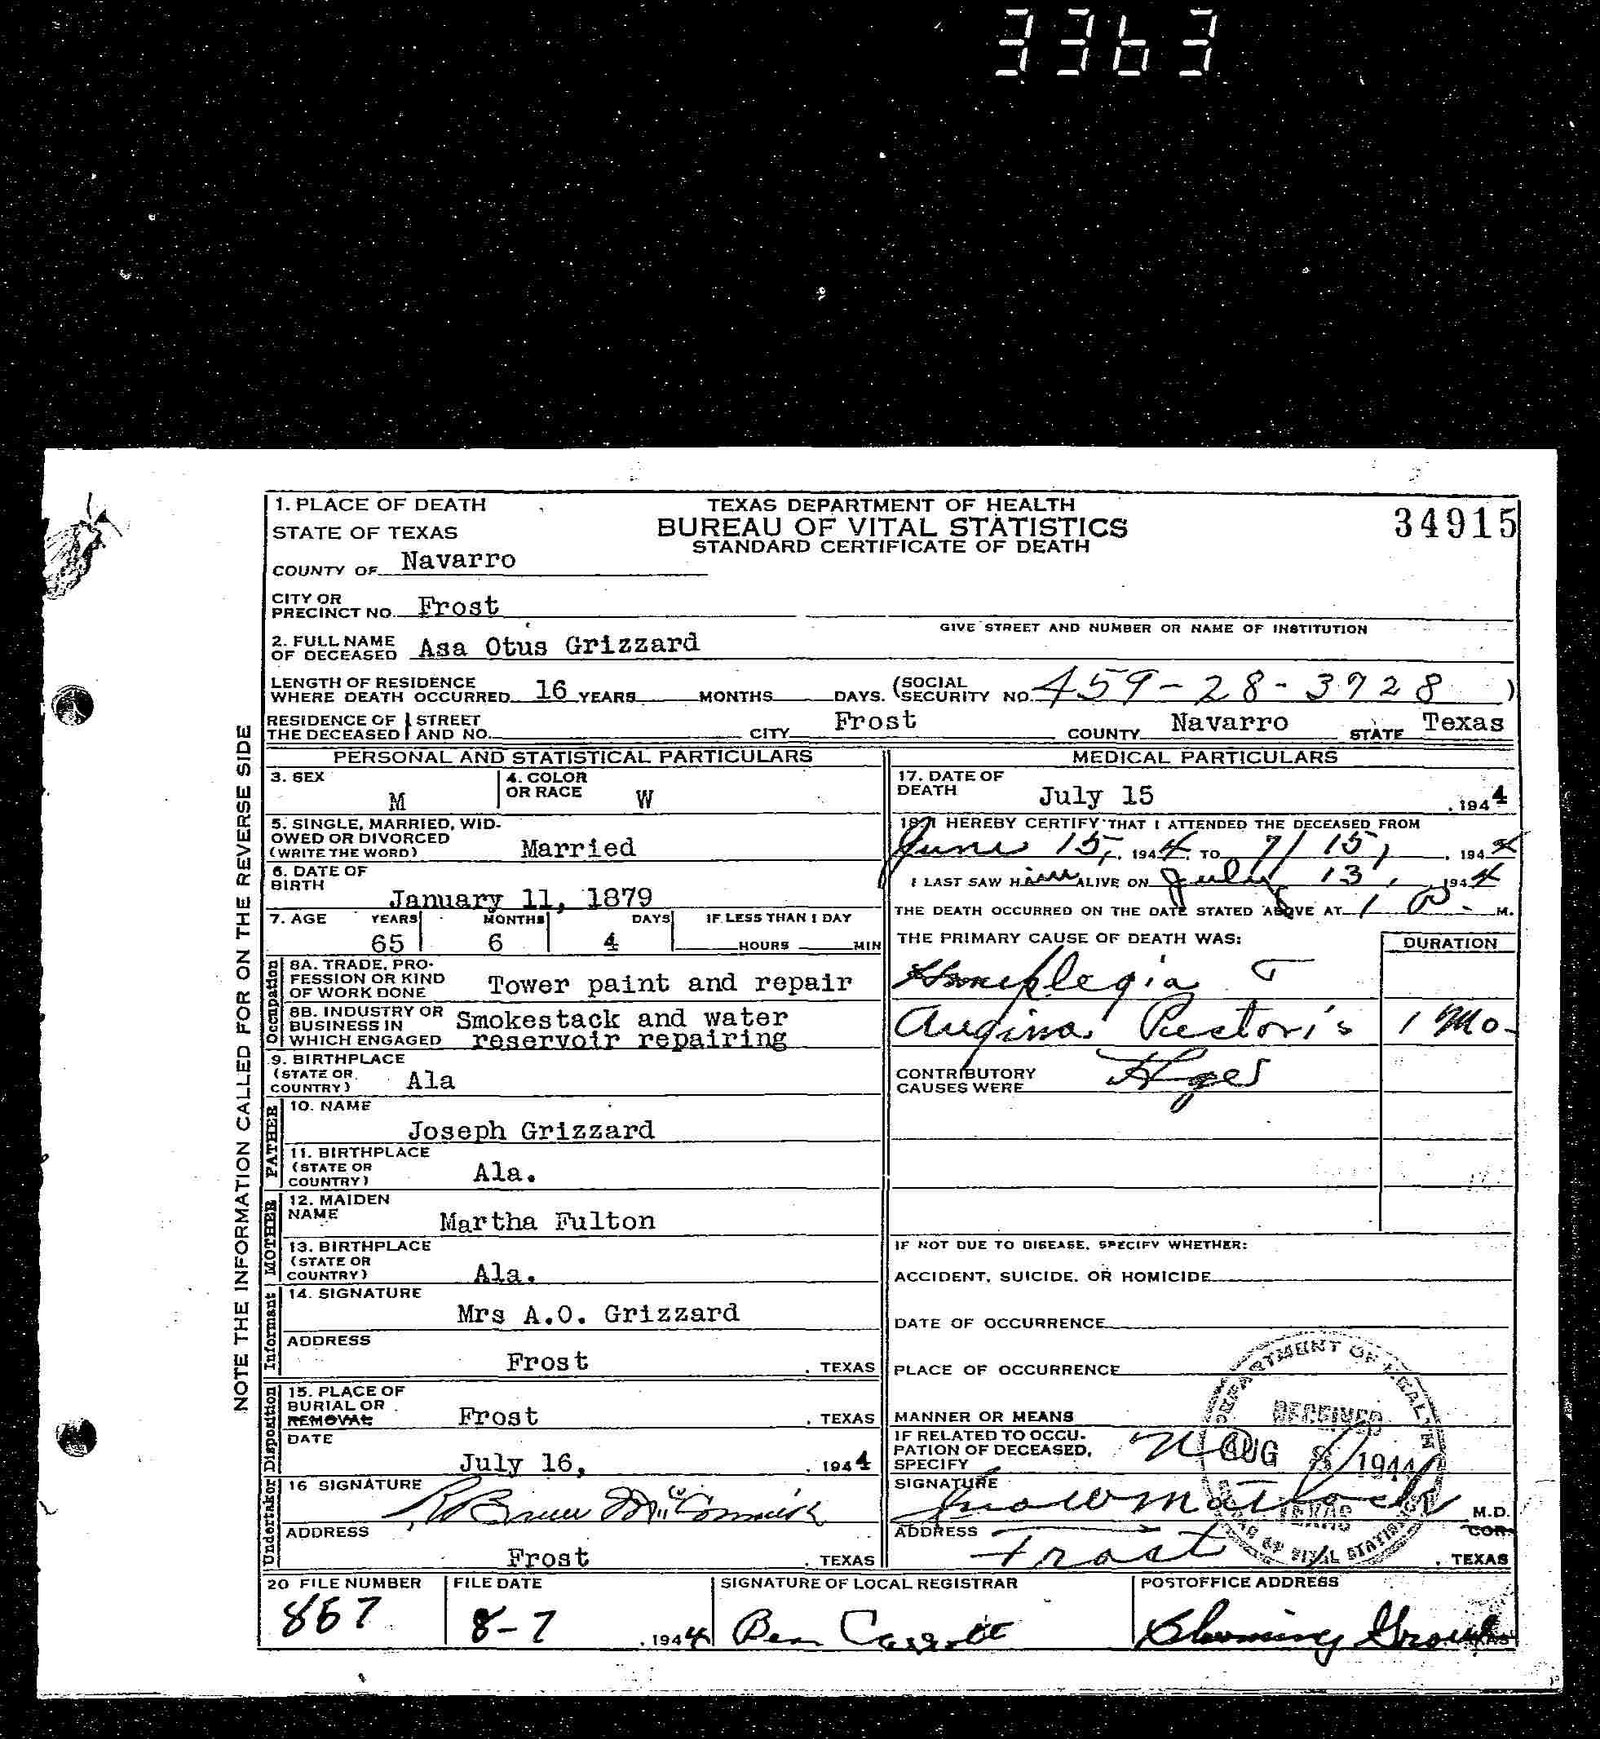 3363
1. PLACE OF DEATH
STATE OF TEXAS
COUNTY OF Navarro
TEXAS DEPARTMENT OF HEALTH
BUREAU OF VITAL STATISTICS
STANDARD CERTIFICATE OF DEATH
34915
CITY OR
PRECINCT NO. Frost
GIVE STREET AND NUMBER OR NAME OF INSTITUTION
2. FULL NAME
OF DECEASED Asa Otus Grizzard
LENGTH OF RESIDENCE
WHERE DEATH OCCURRED 16 YEARS MONTHS DAYS. (SOCIAL SECURITY NO. 459-28-3728 )
RESIDENCE OF THE DECEASED STREET AND NO. CITY Frost COUNTY Navarro STATE Texas
NOTE THE INFORMATION CALLED FOR ON THE REVERSE SIDE
PERSONAL AND STATISTICAL PARTICULARS
3. SEX M
4. COLOR OR RACE W
5. SINGLE, MARRIED, WID-
OWED OR DIVORCED
(WRITE THE WORD) Married
6. DATE OF
BIRTH January 11, 1879
7. AGE YEARS MONTHS DAYS IF LESS THAN 1 DAY
65 6 4 HOURS MIN
Occupation
8A. TRADE, PRO-
FESSION OR KIND
OF WORK DONE Tower paint and repair
8B. INDUSTRY OR
BUSINESS IN
WHICH ENGAGED Smokestack and water
reservoir repairing
9. BIRTHPLACE
(STATE OR
COUNTRY) Ala
FATHER
10. NAME
Joseph Grizzard
11. BIRTHPLACE
(STATE OR
COUNTRY) Ala.
MOTHER
12. MAIDEN
NAME Martha Fulton
13. BIRTHPLACE
(STATE OR
COUNTRY) Ala.
Informant
14. SIGNATURE
Mrs A.O. Grizzard
ADDRESS
Frost , TEXAS
Disposition
15. PLACE OF
BURIAL OR
REMOVAL Frost , TEXAS
DATE
July 16, , 1944
Undertaker
16 SIGNATURE
McCormick
ADDRESS
Frost , TEXAS
MEDICAL PARTICULARS
17. DATE OF
DEATH July 15 , 1944
18. I HEREBY CERTIFY THAT I ATTENDED THE DECEASED FROM
June 15, , 1944, TO 7/15, , 1944
I LAST SAW Him ALIVE ON July 13, , 1944
THE DEATH OCCURRED ON THE DATE STATED ABOVE AT 1 P. M.
THE PRIMARY CAUSE OF DEATH WAS: DURATION
Hemiplegia
Angina Pectoris 1 Mo-
CONTRIBUTORY
CAUSES WERE
IF NOT DUE TO DISEASE, SPECIFY WHETHER:
ACCIDENT, SUICIDE, OR HOMICIDE
DATE OF OCCURRENCE
PLACE OF OCCURRENCE
MANNER OR MEANS
IF RELATED TO OCCU-
PATION OF DECEASED,
SPECIFY no
SIGNATURE Matlock M.D.
COR.
ADDRESS Frost , TEXAS
DEPARTMENT OF HEALTH
RECEIVED
AUG 8 1944
TEXAS
BUREAU OF VITAL STATISTICS
20 FILE NUMBER 867
FILE DATE 8-7 , 1944
SIGNATURE OF LOCAL REGISTRAR Ben
POSTOFFICE ADDRESS Blooming Grove